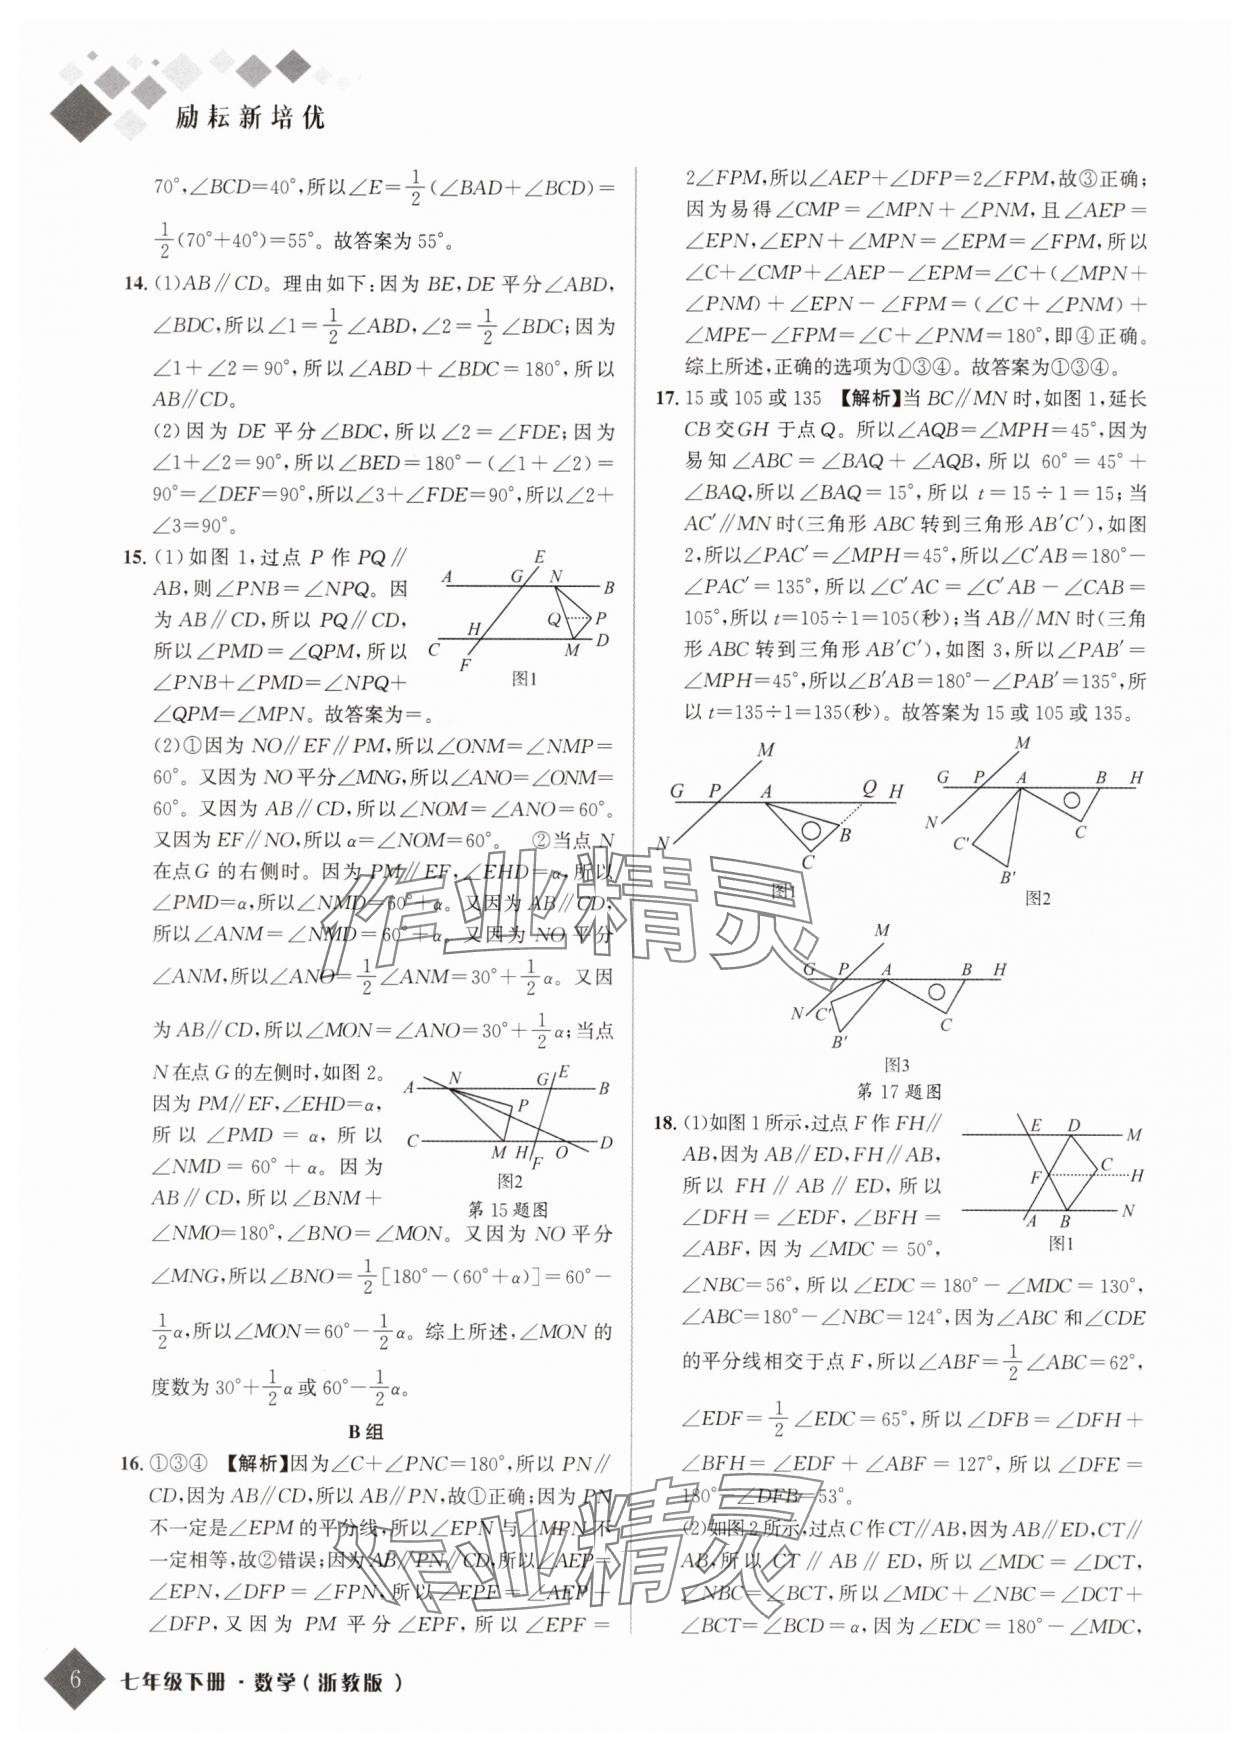 励耘新培优
70°,∠BCD=40°,所以∠E=1/2(∠BAD+∠BCD)=
1/2(70°+40°)=55°。故答案为 55°。
14. (1)AB∥CD。理由如下:因为 BE,DE 平分∠ABD,
∠BDC,所以∠1=1/2∠ABD,∠2=1/2∠BDC;因为
∠1+∠2=90°,所以∠ABD+∠BDC=180°,所以
AB∥CD。
(2)因为 DE 平分∠BDC,所以∠2=∠FDE;因为
∠1+∠2=90°,所以∠BED=180°-(∠1+∠2)=
90°=∠DEF=90°,所以∠3+∠FDE=90°,所以∠2+
∠3=90°。
15. (1)如图 1,过点 P 作 PQ∥
AB,则∠PNB=∠NPQ。因
为 AB∥CD,所以 PQ∥CD,
所以∠PMD=∠QPM,所以
∠PNB+∠PMD=∠NPQ+
∠QPM=∠MPN。故答案为=。
E
A G N B
Q P
H
C M D
F
图1
(2)①因为 NO∥EF∥PM,所以∠ONM=∠NMP=
60°。又因为 NO 平分∠MNG,所以∠ANO=∠ONM=
60°。又因为 AB∥CD,所以∠NOM=∠ANO=60°。
又因为 EF∥NO,所以 α=∠NOM=60°。 ②当点 N
在点 G 的右侧时。因为 PM∥EF,∠EHD=α,所以
∠PMD=α,所以∠NMD=60°+α。又因为 AB∥CD,
所以∠ANM=∠NMD=60°+α。又因为 NO 平分
∠ANM,所以∠ANO=1/2∠ANM=30°+1/2α。又因
为 AB∥CD,所以∠MON=∠ANO=30°+1/2α;当点
N 在点 G 的左侧时,如图 2。
因为 PM∥EF,∠EHD=α,
所以∠PMD=α,所以
∠NMD=60°+α。因为
AB∥CD,所以∠BNM+
A N G E B
P
C M H F O D
图2
第 15 题图
∠NMO=180°,∠BNO=∠MON。又因为 NO 平分
∠MNG,所以∠BNO=1/2[180°-(60°+α)]=60°-
1/2α,所以∠MON=60°-1/2α。综上所述,∠MON 的
度数为 30°+1/2α 或 60°-1/2α。
B 组
16. ①③④ 【解析】因为∠C+∠PNC=180°,所以 PN∥
CD,因为 AB∥CD,所以 AB∥PN,故①正确;因为 PN
不一定是∠EPM 的平分线,所以∠EPN 与∠MPN 不
一定相等,故②错误;因为 AB∥PN∥CD,所以∠AEP=
∠EPN,∠DFP=∠FPN,所以∠EPF=∠AEP+
∠DFP,又因为 PM 平分∠EPF,所以∠EPF=
2∠FPM,所以∠AEP+∠DFP=2∠FPM,故③正确;
因为易得∠CMP=∠MPN+∠PNM,且∠AEP=
∠EPN,∠EPN+∠MPN=∠EPM=∠FPM,所以
∠C+∠CMP+∠AEP-∠EPM=∠C+(∠MPN+
∠PNM)+∠EPN-∠FPM=(∠C+∠PNM)+
∠MPE-∠FPM=∠C+∠PNM=180°,即④正确。
综上所述,正确的选项为①③④。故答案为①③④。
17. 15 或 105 或 135 【解析】当 BC∥MN 时,如图 1,延长
CB 交 GH 于点 Q。所以∠AQB=∠MPH=45°,因为
易知∠ABC=∠BAQ+∠AQB,所以 60°=45°+
∠BAQ,所以∠BAQ=15°,所以 t=15÷1=15;当
AC′∥MN 时(三角形 ABC 转到三角形 AB′C′),如图
2,所以∠PAC′=∠MPH=45°,所以∠C′AB=180°-
∠PAC′=135°,所以∠C′AC=∠C′AB-∠CAB=
105°,所以 t=105÷1=105(秒);当 AB∥MN 时(三角
形 ABC 转到三角形 AB′C′),如图 3,所以∠PAB′=
∠MPH=45°,所以∠B′AB=180°-∠PAB′=135°,所
以 t=135÷1=135(秒)。故答案为 15 或 105 或 135。
M
G P A Q H
B
N
C
图1
M
G P A B H
N
C′ C
B′
图2
M
G P A B H
N C′ C
B′
图3
第 17 题图
18. (1)如图 1 所示,过点 F 作 FH∥
AB,因为 AB∥ED,FH∥AB,
所以 FH∥AB∥ED,所以
∠DFH=∠EDF,∠BFH=
∠ABF,因为∠MDC=50°,
E D M
C
F H
A B N
图1
∠NBC=56°,所以∠EDC=180°-∠MDC=130°,
∠ABC=180°-∠NBC=124°,因为∠ABC 和∠CDE
的平分线相交于点 F,所以∠ABF=1/2∠ABC=62°,
∠EDF=1/2∠EDC=65°,所以∠DFB=∠DFH+
∠BFH=∠EDF+∠ABF=127°,所以∠DFE=
180°-∠DFB=53°。
(2)如图 2 所示,过点 C 作 CT∥AB,因为 AB∥ED,CT∥
AB,所以 CT∥AB∥ED,所以∠MDC=∠DCT,
∠NBC=∠BCT,所以∠MDC+∠NBC=∠DCT+
∠BCT=∠BCD=α,因为∠EDC=180°-∠MDC,
作业精灵
作业精灵
6 七年级下册·数学(浙教版)